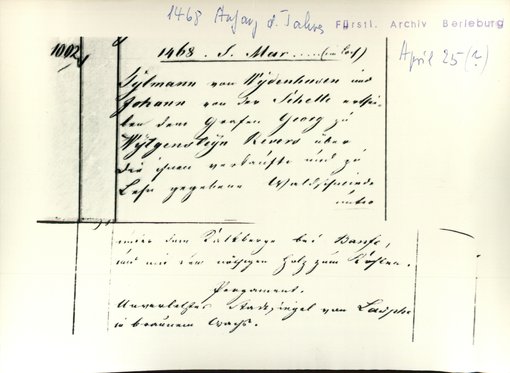 1468 Anfang d. Jahres Fürstl. Archiv Berleburg
April 25 (?)
1002
1468. S. Mar.....(in Dorf)
Tylmann von Wydenhusen und
Johann von der Schette erthei-
len dem Grafen Georg zu
Wytgensteyn Revers über
die ihnen verkaufte und zu
Lehn gegebene Waldschmiede
unter
unter dem Kalkberge bei Banfe,
und mit dem nöthigen Holz zum Kohlen.
Pergament.
Unverletztes Stadtsiegel von Laasphe
in braunem Wachs.